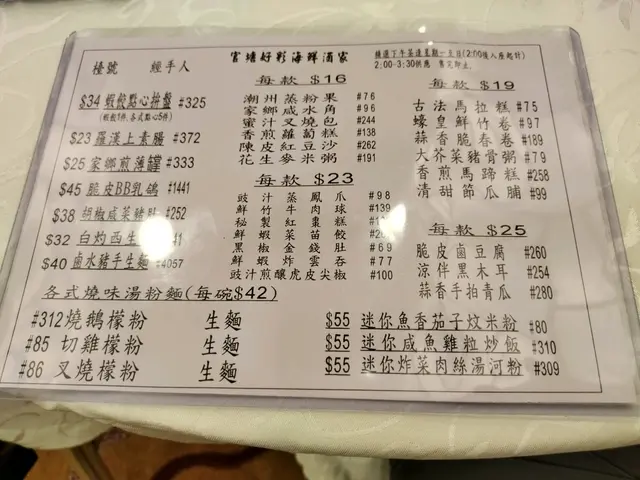 官塘好彩海鮮酒家
檯號 經手人
精選下午茶逢星期一至日(2:00後入座起計)
2:00-3:30供應 售完即止
$34 蝦餃點心拚盤 #325
(蝦餃1件,各式點心5件)
$23 羅漢上素腸 #372
$25 家鄉煎薄罉 #333
$45 脆皮BB乳鴿 #1441
$38 胡椒咸菜豬肚 #252
$32 白灼西生
$40 鹵水豬手生麵 #4057
每款 $16
潮州蒸粉果 #76
家鄉咸水角 #96
蜜汁叉燒包 #244
香煎蘿蔔糕 #138
陳皮紅豆沙 #262
花生麥米粥 #191
每款 $23
豉汁蒸鳳爪 #98
鮮竹牛肉球 #139
秘製紅棗糕
鮮蝦菜苗餃
黑椒金錢肚 #69
鮮蝦炸雲吞 #77
豉汁煎釀虎皮尖椒 #100
每款 $19
古法馬拉糕 #75
蠔皇鮮竹卷 #97
蒜香脆春卷 #189
大芥菜豬骨粥 #79
香煎馬蹄糕 #258
清甜節瓜脯 #99
每款 $25
脆皮鹵豆腐 #260
涼伴黑木耳 #254
蒜香手拍青瓜 #280
各式燒味湯粉麵(每碗$42)
#312燒鵝檬粉 生麵
#85 切雞檬粉 生麵
#86 叉燒檬粉 生麵
$55 迷你魚香茄子炆米粉 #80
$55 迷你咸魚雞粒炒飯 #310
$55 迷你炸菜肉絲湯河粉 #309